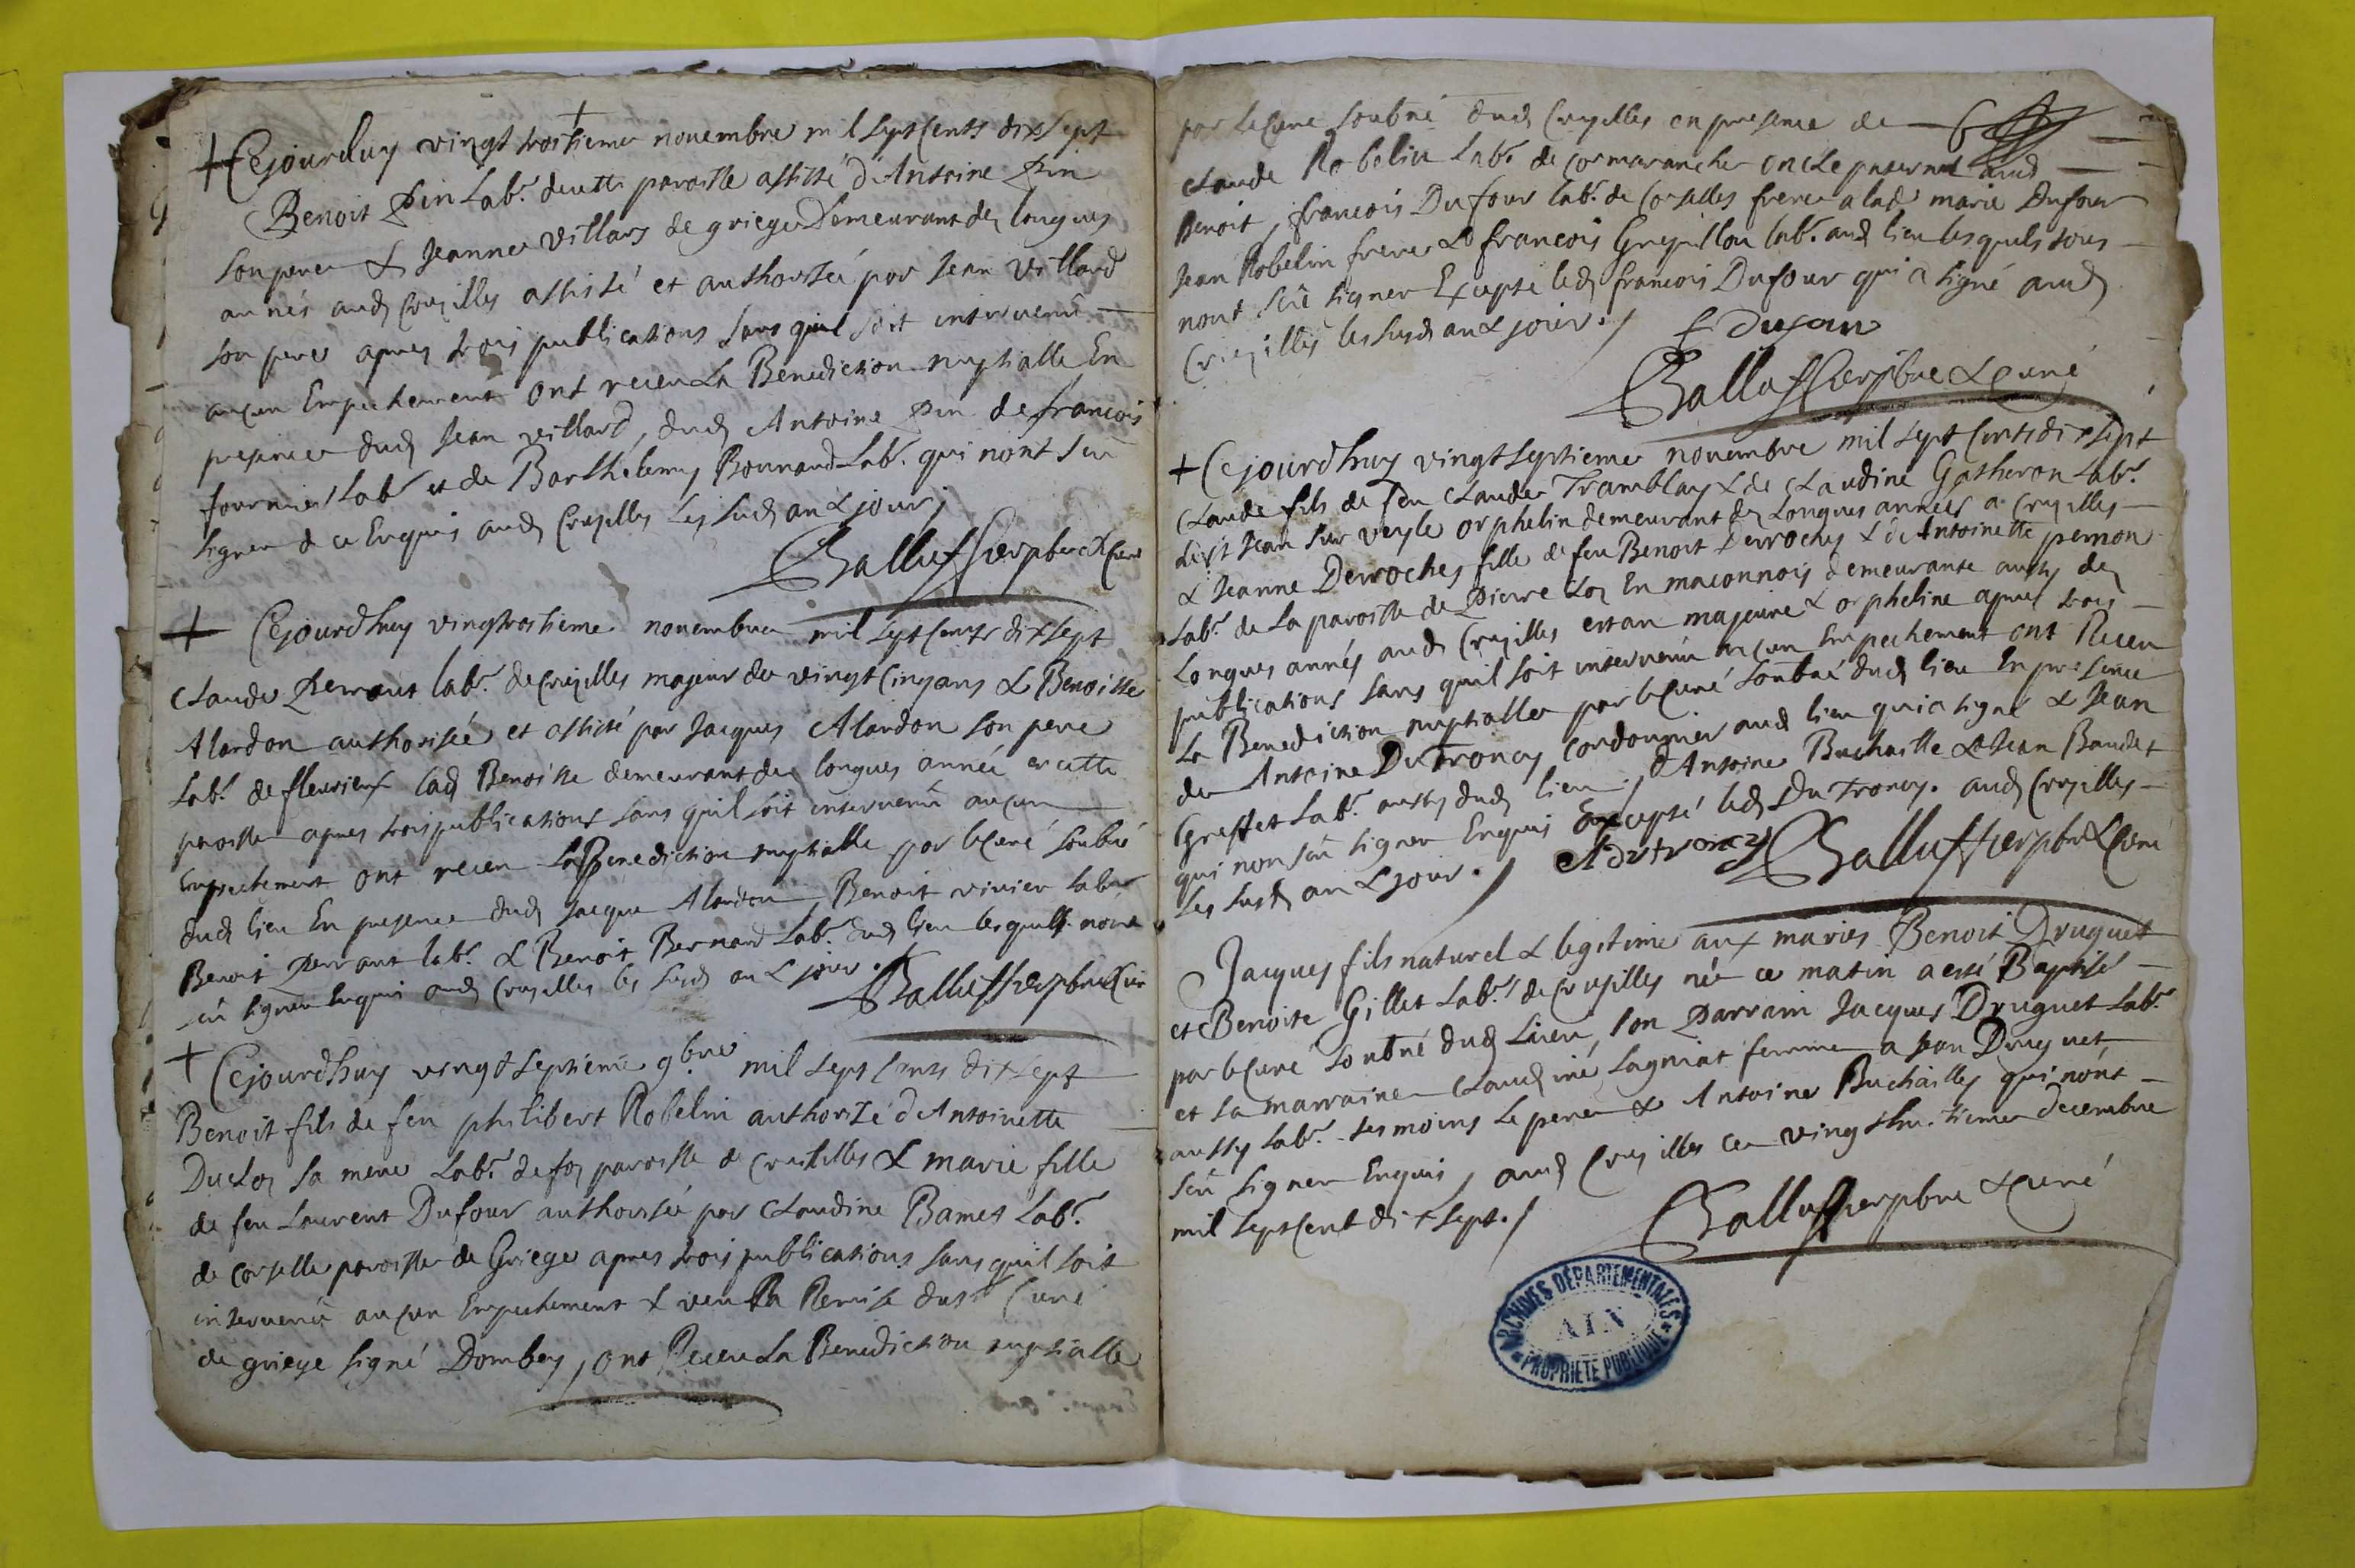 + Cejourduy vingt troisieme novembre mil sept cents dix sept
Benoit Pin Labr. de cette paroisse assisté d'Antoine Pin
son pere & Jeanne Villars de griege demeurant des longues
annés aud Cruzilles assisté et authorisée par Jean Villard
son pere apres trois publications sans quil soit intervenû
aucun Empechement ont receu La Benediction nuptialle En
presence dud Jean villard, dud Antoine Pin de françois
fournier Labr et de Barthelemy Bonnard Labr. qui nont sçu
signer de ce Enquis aud Cruzilles Les susd an & jour,
Balluf pbre & Curé
+ Cejourdhuy vingtroisieme novembre mil sept cents dix sept
Claude Perraut labr. de cruzilles majeur de vingt cinq ans & Benoiste
Alardon authorisée et assisté par Jacques Alardon son pere
Labr. de fleurieux lad Benoiste demeurant des longues année en cette
paroisse apres trois publications sans quil soit intervenû aucun
Empechement ont receu La Benediction nuptialle par le Curé soubné
dud lieu En presence dud Jacque Alardon, Benoit vivier labr
Benoit Perraut labr. & Benoit Bernard Labr. dud lieu lesquels nont
sçû signer enquis aud Cruzilles les susd an & jour.
Balluf pbre & Curé
+ Cejourdhuy vingt septieme 9bre mil sept cents dix sept
Benoit fils de feu philibert Robelin authorizé d'Antoinette
Duclos sa mere Labr. de foy paroisse de cruzilles & marie fille
de feu Laurent Dufour authorisée par Claudine Bames Labr.
de corselle paroisse de Griege apres trois publications sans quil soit
intervenû aucun Empechement & veu La Remise du sr Curé
de griege signé Dombey, ont Receu La Benediction nuptialle
par le Curé soubné dud Cruzilles en presence de
claude Robelin Labr. de cormaranche oncle paternel aud
Benoit, francois Dufour labr. de Corselles frere a lad marie Dufour
Jean Robelin frere & francois Greuillon labr. aud lieu lesquels tous
nont sçû signer Excepté led francois Dufour qui a signé aud
Cruzilles les susd an & jour. / f dufour
Balluf pbre & Curé
+ Cejourdhuy vingt septieme novembre mil sept cents dix sept
Claude fils de feu Claude Tramblay & de Claudine Gatheron Labr.
de st Jean sur veyle orphelin demeurant des Longues années a cruzilles
& Jeanne Derroches fille de feu Benoit Derroches & d'Antoinette pernon
Labr. de La paroisse de Pierre Clos En maconnois demeurante aussy des
Longues annés aud Cruzilles estan majeure & orpheline apres trois
publications sans quil soit intervenû aucun Empechement ont Receu
La Benediction nuptialle par le Curé soubné dud lieu En presence
de Antoine Dutroncy cordonnier aud lieu qui a signé & Jean
Greffet Labr. aussy dud lieu, d'Antoine Buchaille & Jean Baudet
qui non sçû signer Enquis Excepté led Dutroncy. aud Cruzilles
Les susd an & jour. / Adutroncy Balluf pbre & Curé
Jacques fils naturel & legitime aux maries Benoit Druguet
et Benoite Gillet Labr. de cruzilles né ce matin a esté Baptisé
par le Curé soubné dud Lieu, son Parrain Jacques Druguet Labr.
et sa marraine Claudine Lagniat femme a Jean Druguet
aussy Labr. tesmoins Le pere & Antoine Buchailles qui nont
sçû signer Enquis, aud Cruzilles ce vingt hu. tieme decembre
mil sept cent dix sept. /
Balluf pbre & Curé
ARCHIVES DÉPARTEMENTALES
AIN
PROPRIÉTÉ PUBLIQUE